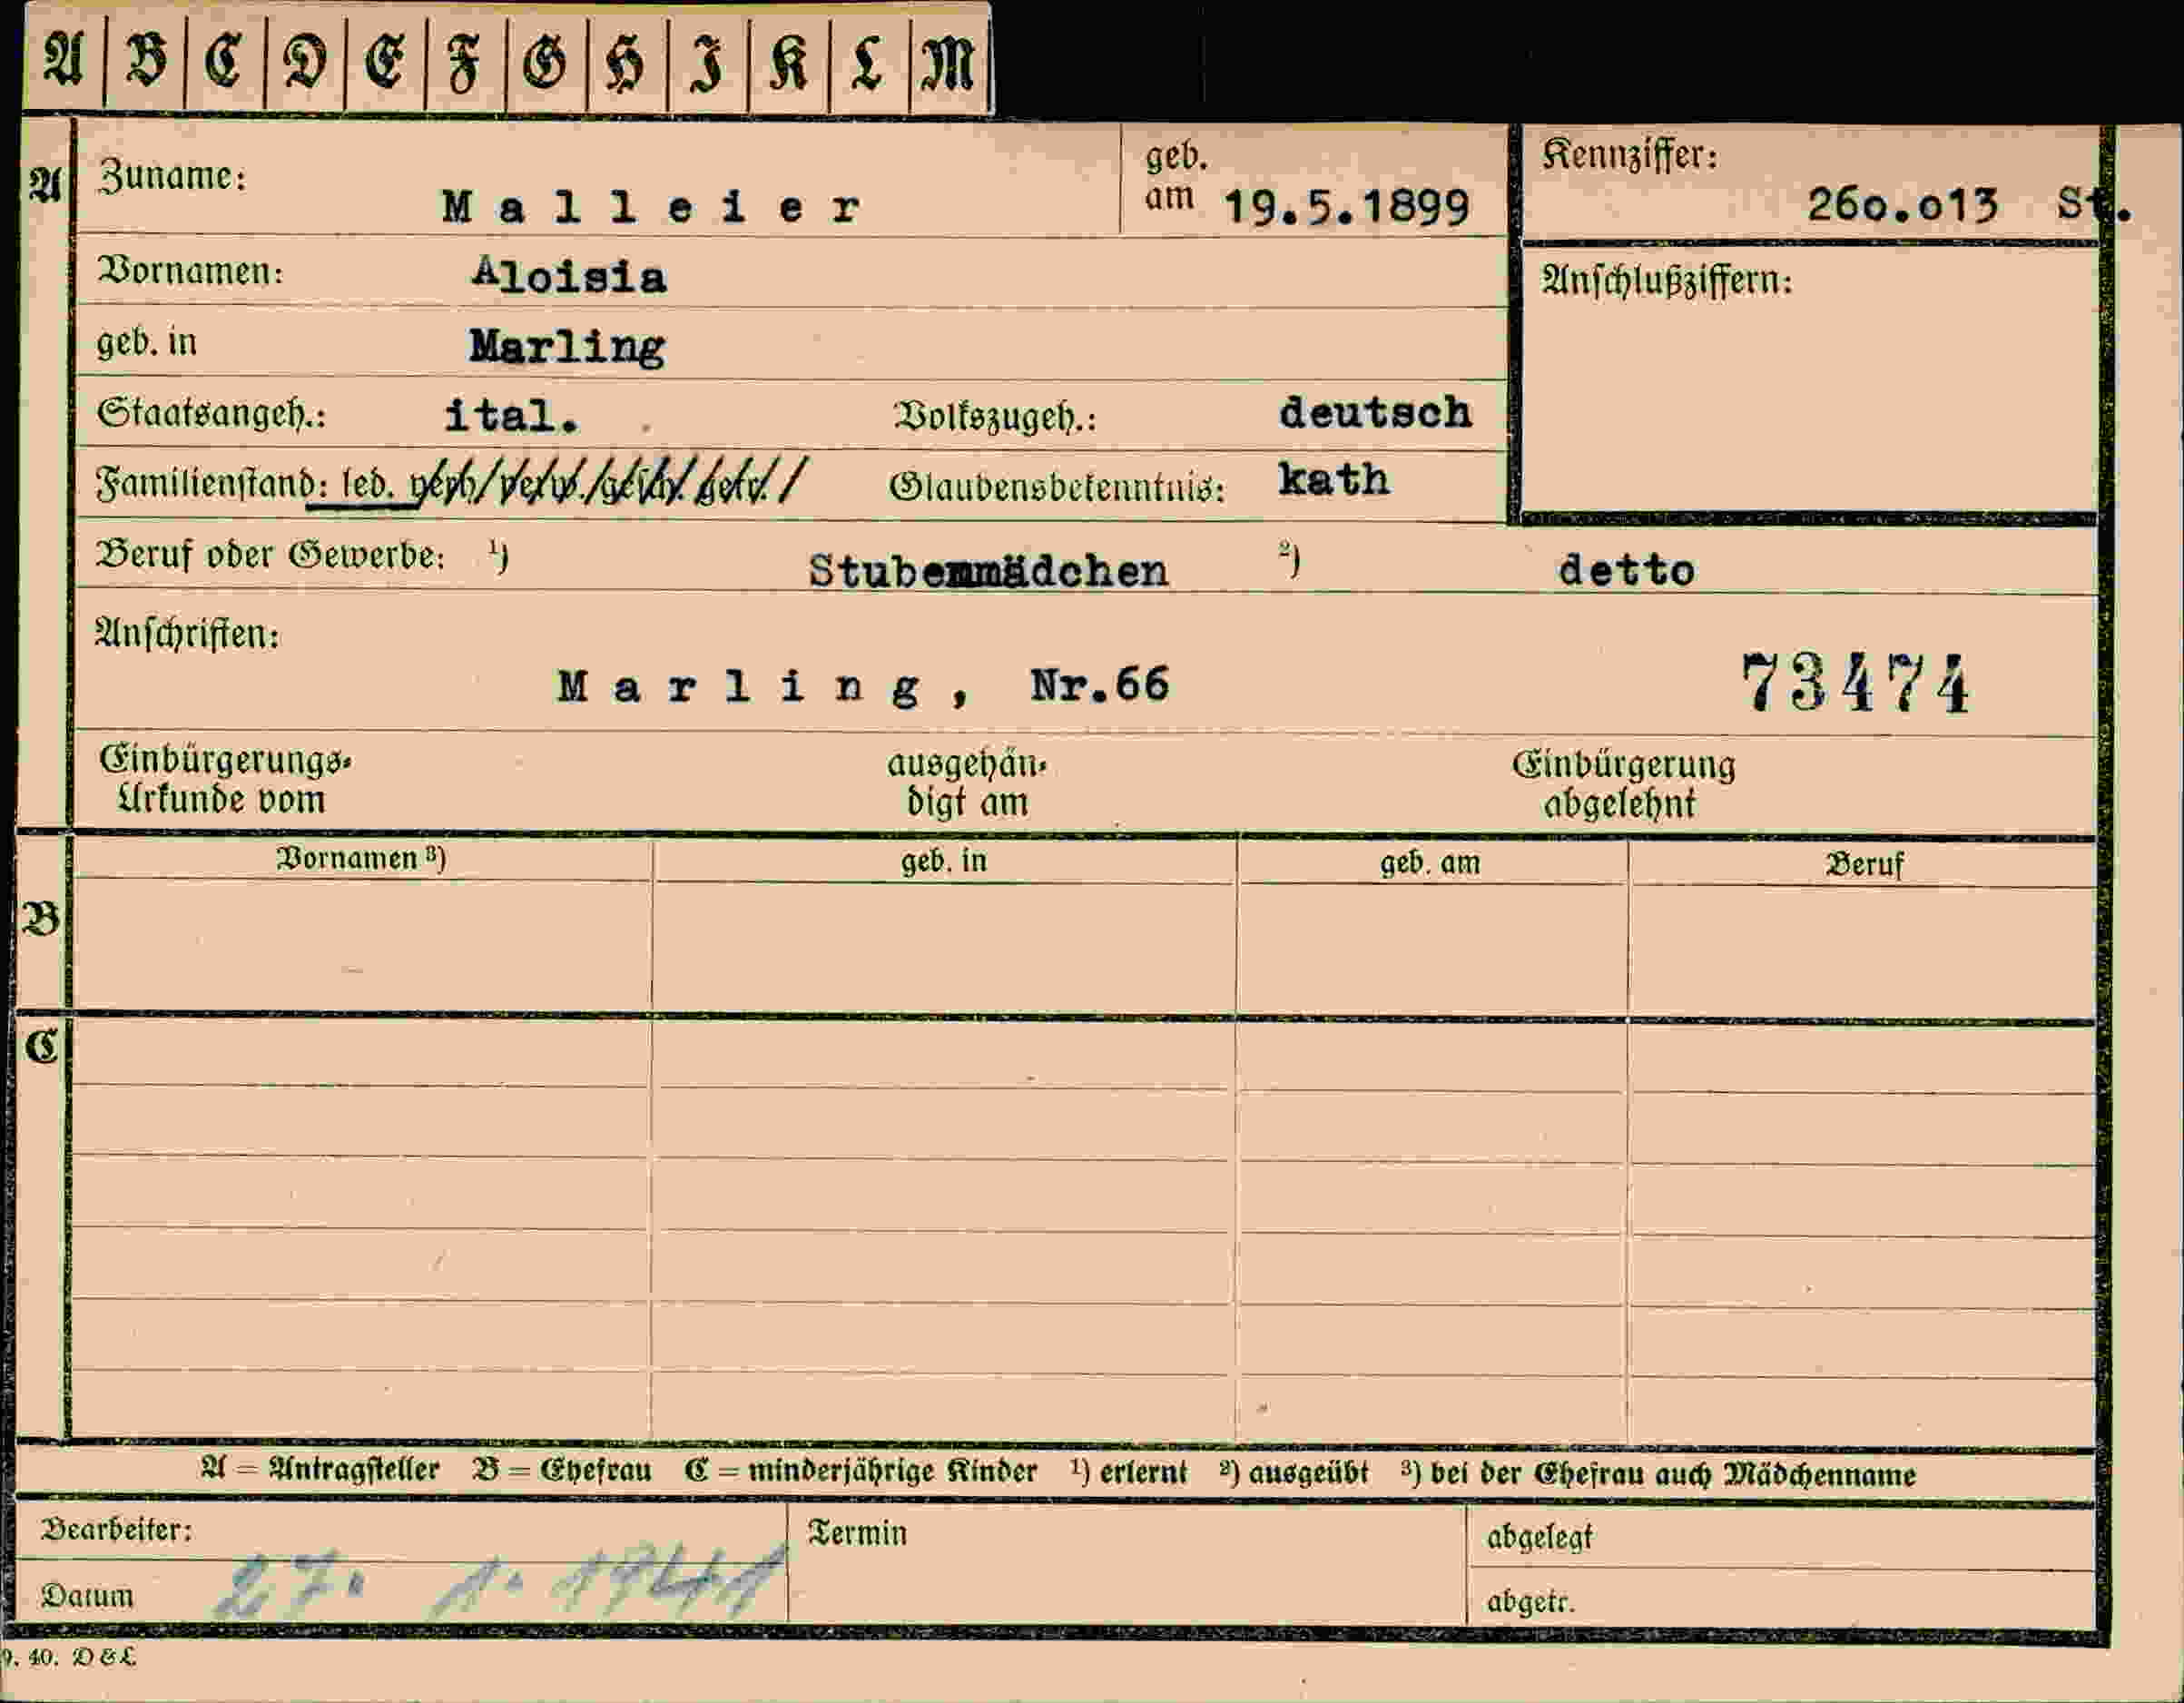 A B C D E F G H I K L M
A Zuname: Malleier geb. am 19.5.1899 Kennziffer: 26o.o13 St.
Vornamen: Aloisia Anschlußziffern:
geb. in Marling
Staatsangeh.: ital. Volkszugeh.: deutsch
Familienstand: led. verh/verw./gesch. getr. / Glaubensbekenntnis: kath
Beruf oder Gewerbe: ¹) Stubenmädchen ²) detto
Anschriften:
Marling, Nr.66 73474
Einbürgerungs-Urkunde vom ausgehän-digt am Einbürgerung abgelehnt
Vornamen ³) geb. in geb. am Beruf
B
C
A = Antragsteller B = Ehefrau C = minderjährige Kinder ¹) erlernt ²) ausgeübt ³) bei der Ehefrau auch Mädchenname
Bearbeiter: Termin abgelegt
Datum 27. 1. 1941 abgetr.
9. 40. D & L